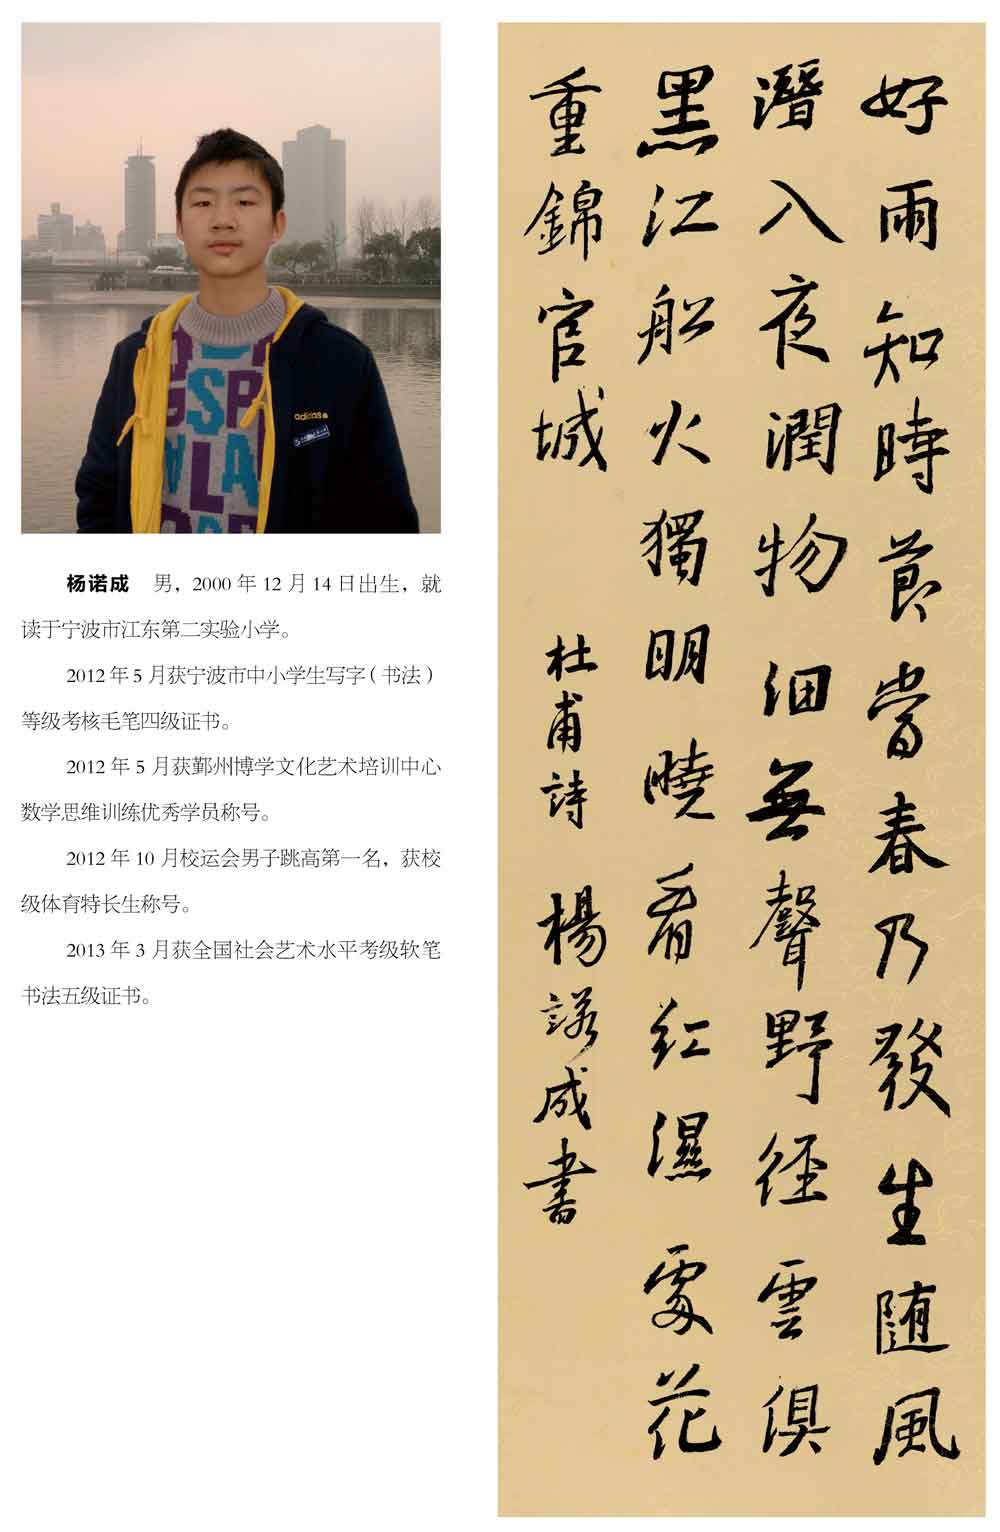 adidas
杨诺成 男，2000 年 12 月 14 日出生，就
读于宁波市江东第二实验小学。
2012 年 5 月获宁波市中小学生写字（书法）
等级考核毛笔四级证书。
2012 年 5 月获鄞州博学文化艺术培训中心
数学思维训练优秀学员称号。
2012 年 10 月校运会男子跳高第一名，获校
级体育特长生称号。
2013 年 3 月获全国社会艺术水平考级软笔
书法五级证书。
好雨知時節當春乃發生随風
潛入夜潤物細無聲野徑雲俱
黑江船火獨明曉看紅濕處花
重錦官城
杜甫詩 楊諾成書